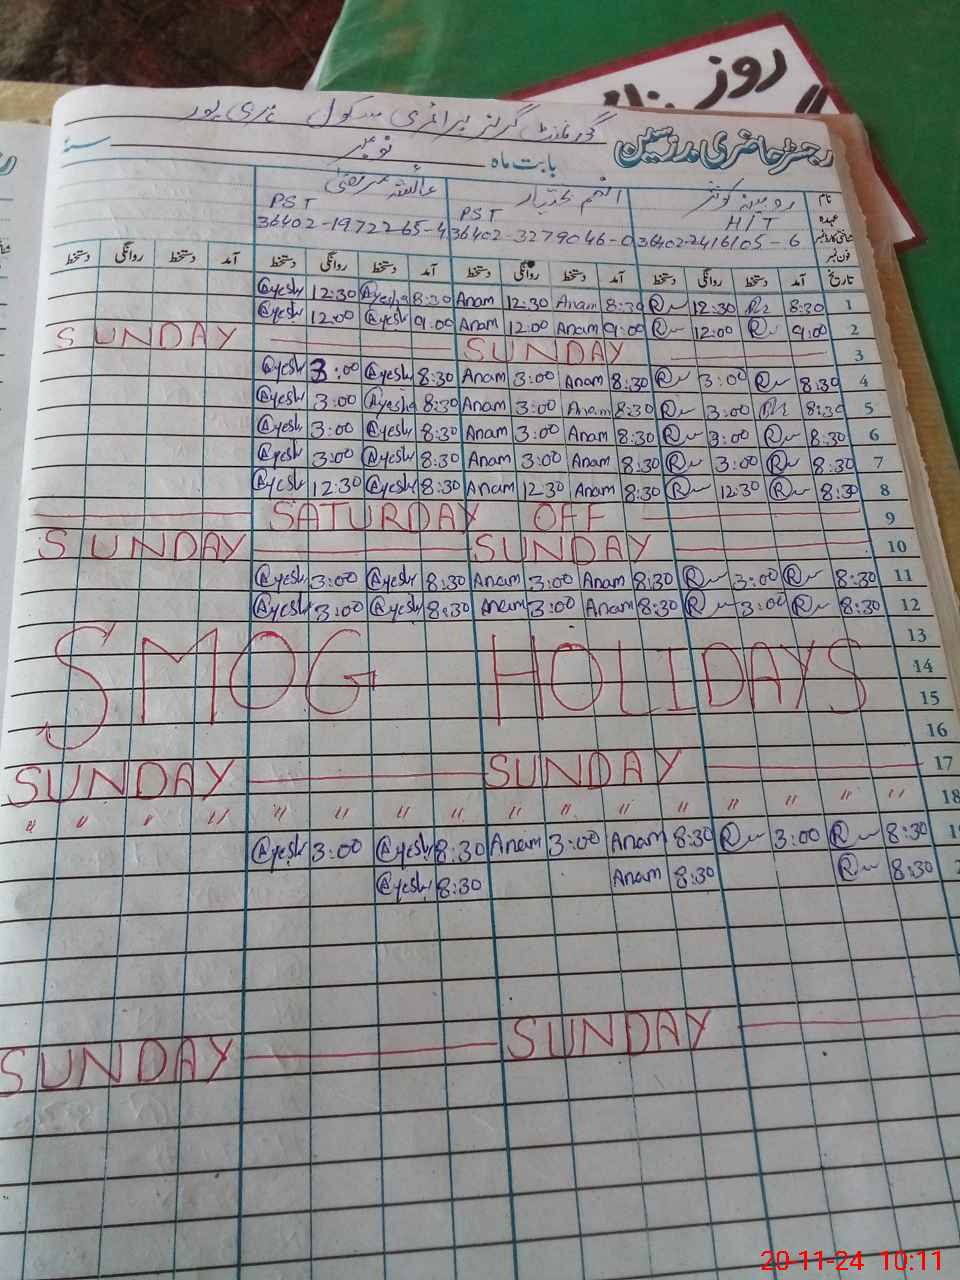 روز
گورنمنٹ گرلز پرائمری سکول
رجسٹر حاضری مدرسین
بابت ماہ نومبر سنہ
نام روبینہ کوثر انعم بختیار عائشہ مرتضیٰ
عہدہ H/T PST PST
شناختی کارڈ نمبر 36402-2416105-6 36402-3279046-0 36402-1972265-4
فون نمبر
تاریخ آمد دستخط روانگی دستخط آمد دستخط روانگی دستخط آمد دستخط روانگی دستخط آمد دستخط روانگی دستخط
@yesh 12:30 Ayesha 8:30 Anam 12:30 Anam 8:30 12:30 8:30 1
@yesh 12:00 @yesh 9:00 Anam 12:00 Anam 9:00 12:00 9:00 2
SUNDAY SUNDAY 3
@yesh 3:00 @yesh 8:30 Anam 3:00 Anam 8:30 3:00 8:30 4
@yesh 3:00 Ayesha 8:30 Anam 3:00 Anam 8:30 3:00 8:30 5
@yesh 3:00 @yesh 8:30 Anam 3:00 Anam 8:30 3:00 8:30 6
@yesh 3:00 @yesh 8:30 Anam 3:00 Anam 8:30 3:00 8:30 7
@yesh 12:30 @yesh 8:30 Anam 12:30 Anam 8:30 12:30 8:30 8
SATURDAY OFF 9
SUNDAY SUNDAY 10
@yesh 3:00 @yesh 8:30 Anam 3:00 Anam 8:30 3:00 8:30 11
@yesh 3:00 @yesh 8:30 Anam 3:00 Anam 8:30 3:00 8:30 12
13
SMOG HOLIDAYS 14
15
16
SUNDAY SUNDAY 17
" " " " " " " " " " " " " " " " 18
@yesh 3:00 @yesh 8:30 Anam 3:00 Anam 8:30 3:00 8:30
@yesh 8:30 Anam 8:30 8:30
SUNDAY SUNDAY
20-11-24 10:11